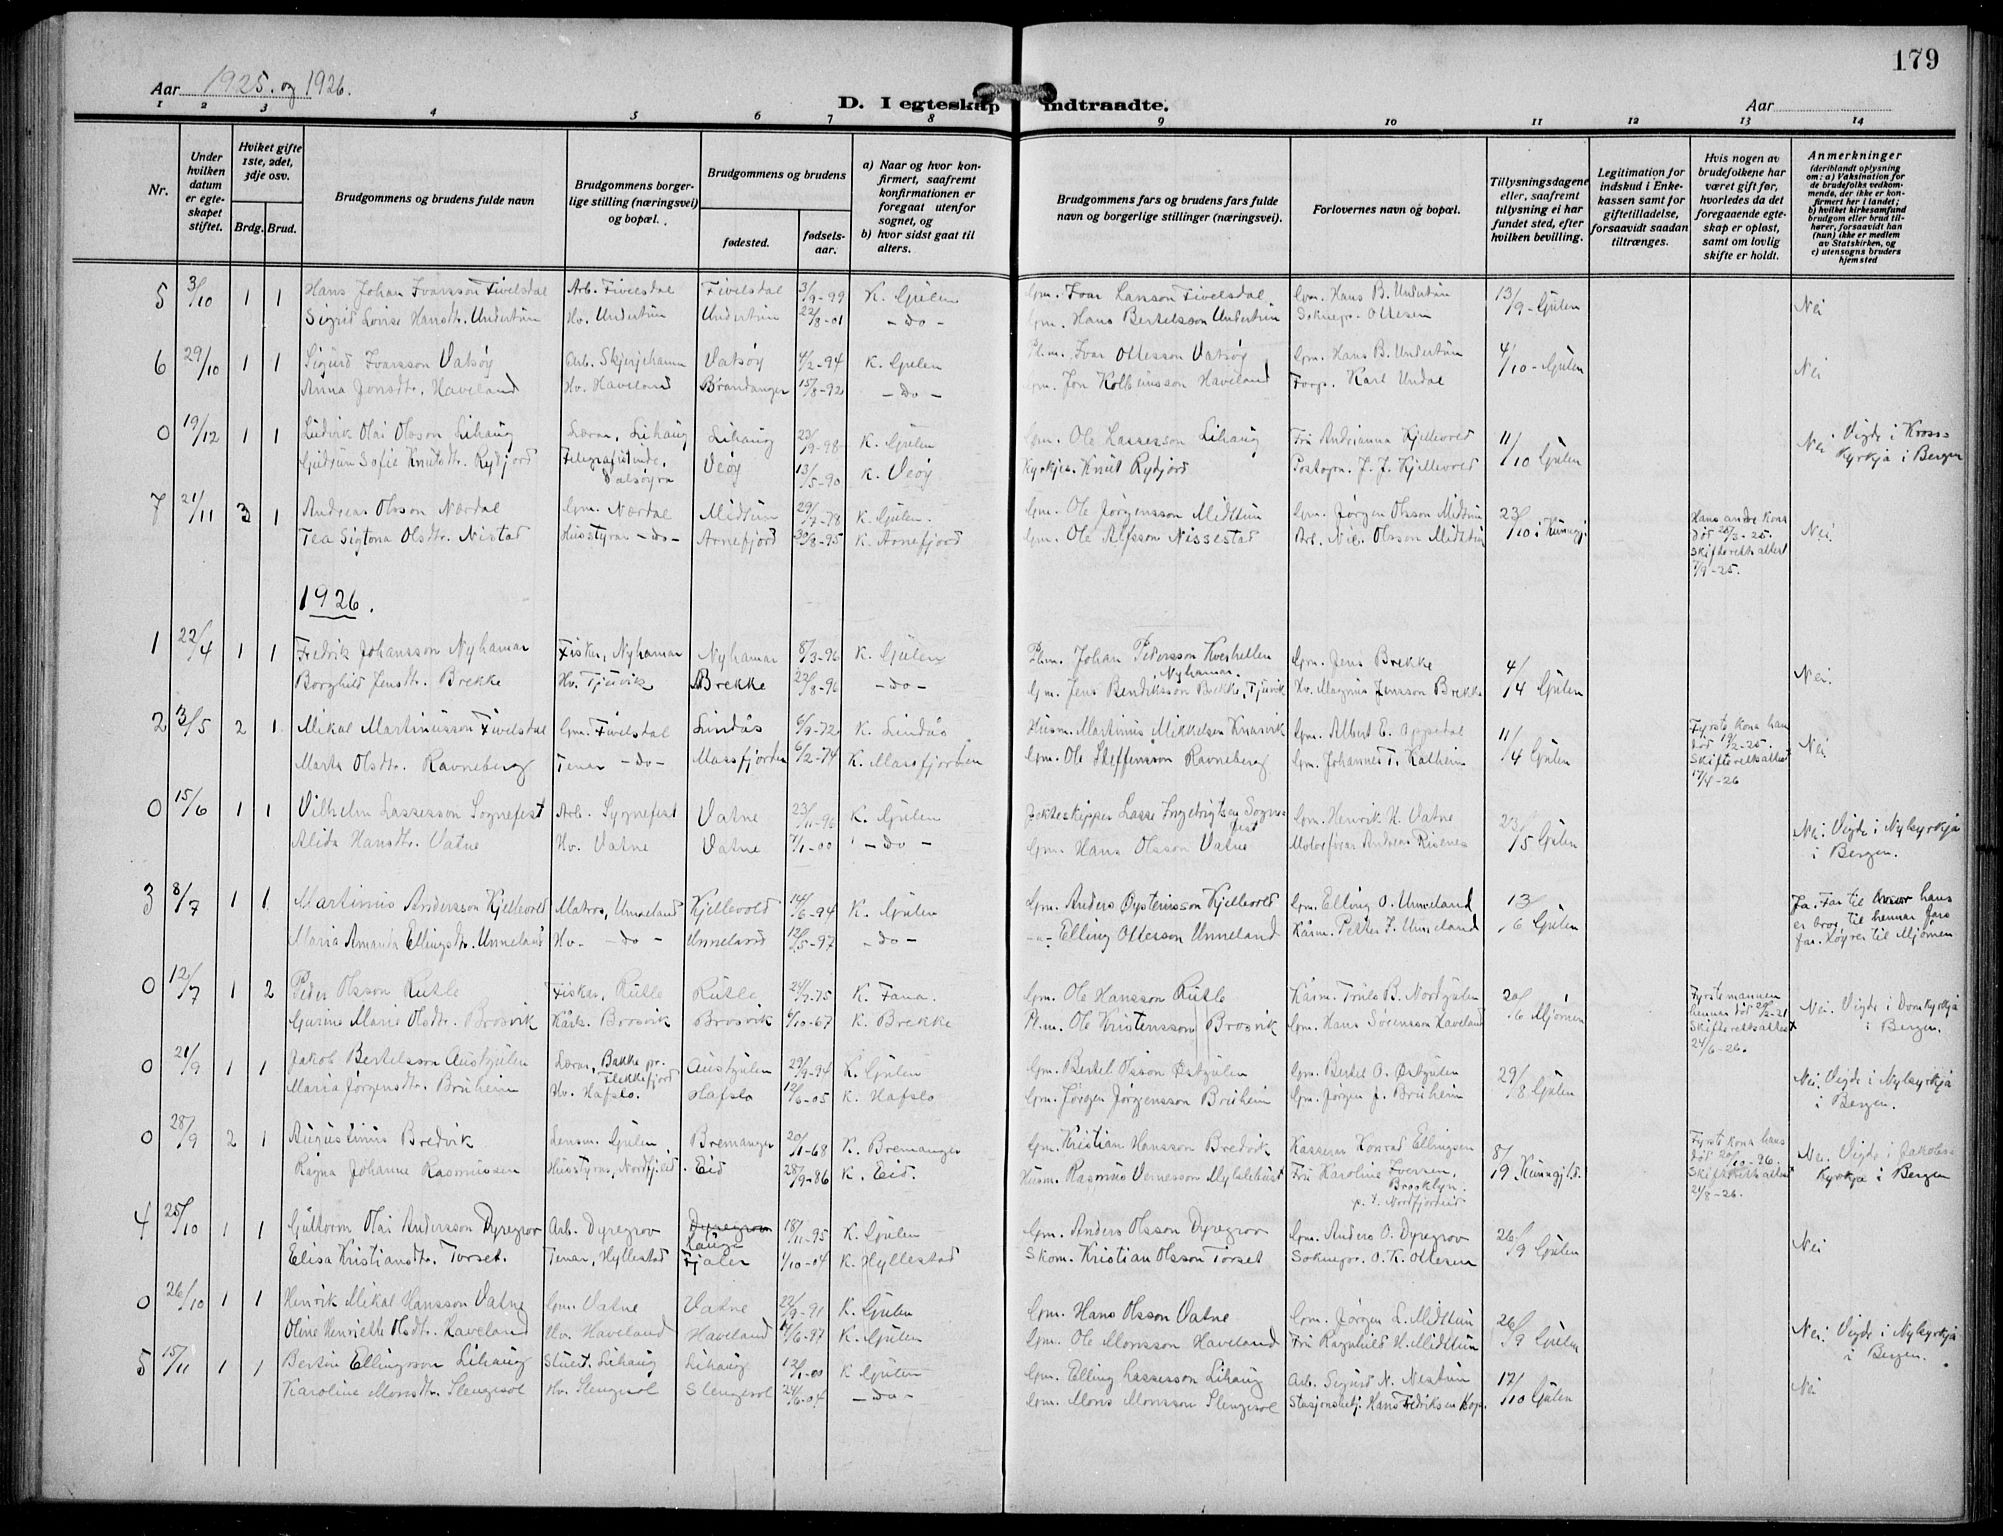 179
Aar 1925. og 1926.
D. I egteskap indtraadte.
Aar
1 2 3 4 5 6 7 8 9 10 11 12 13 14
Nr.
Under hvilken datum er egteskapet stiftet.
Hviket gifte 1ste, 2det, 3dje osv.
Brdg. Brud.
Brudgommens og brudens fulde navn
Brudgommens borgerlige stilling (næringsvei) og bopæl.
Brudgommens og brudens
fødested. fødselsaar.
a) Naar og hvor konfirmert, saafremt konfirmationen er foregaat utenfor sognet, og
b) hvor sidst gaat til alters.
Brudgommens fars og brudens fars fulde navn og borgerlige stillinger (næringsvei).
Forlovernes navn og bopæl.
Tillysningsdagene eller, saafremt tillysning ei har fundet sted, efter hvilken bevilling.
Legitimation for indskud i Enkekassen samt for giftetilladelse, forsaavidt saadan tiltrænges.
Hvis nogen av brudefolkene har været gift før, hvorledes da det foregaaende egteskap er opløst, samt om lovlig skifte er holdt.
Anmerkninger (deriblandt oplysning om: a) Vaksination for de brudefolks vedkommende, der ikke er konfirmert her i landet; b) hvilket kirkesamfund brudgom eller brud tilhører, forsaavidt han (hun) ikke er medlem av Statskirken, og c) utensogns bruders hjemsted
5 3/10 1 1 Hans Johan Ivarsson Fivelsdal Arb. Fivelsdal Fivelsdal 3/9-99 K. Gulen Gm. Ivar Larsson Fivelsdal Gm. Hans B. Undertun 13/9 - Gulen Nei
Sigrid Lovise Hansdtr. Undertun Hv. Undertun Undertun 22/8-01 - Do - Gm. Hans Bertelsson Undertun Soknepr. Ottesen
6 29/10 1 1 Sigurd Ivarsson Vatsøy Arb. Skjerjehamn Vatsøy 4/2-94 K. Gulen Pl.m. Ivar Ottesson Vatsøy Gm. Hans B. Undertun 4/10 - Gulen Nei
Anna Jonsdtr. Haveland Hv. Haveland Brandanger 15/8-92 - Do - Gm. Jon Kolbeinsson Haveland Forp. Karl Undal
0 19/12 1 1 Ludvik Olai Olsson Lihaug Lærar, Lihaug Lihaug 23/9-98 K. Gulen Gm. Ole Lassesson Lihaug Fru Andrianna Kjellevold 11/10 Gulen Nei Vigde i Kross-
Gudrun Sofie Knutsdtr. Rydjord Telegrafistinde, Dalsøyra Veøy 13/5-90 K. Veøy Kyrkjes. Knut Rydjord Postopn. J. J. Kjellevold kyrkja i Bergen
7 21/11 3 1 Andreas Olsson Nærdal Gm. Nærdal Midtun 29/7-78 K. Gulen. Gm. Ole Jørgensson Midttun Gm. Jørgen Olsson Midttun 23/10 i Kunngj. Hans andre kona død 28/3-25. Skifterettsattest 7/9-25. Nei.
Tea Sigtona Olsdtr. Nistad Husstyrar - do - Arnefjord 30/8-95 K. Arnefjord Gm. Ole Alfsson Nissestad Arb. Nils Olsson Midttun
1926.
1 22/4 1 1 Fredrik Johansson Nyhamar Fiskar, Nyhamar Nyhamar 8/3-96 K. Gulen Pl.m. Johan Pedersson Kveshellen Nyhamar. Gm. Jens Brekke 4/14 Gulen Nei.
Borghild Jensdtr. Brekke Hv. Tjuvik Brekke 22/8-96 - do - Gm. Jens Bendiksson Brekke, Tjuvik Hv. Magnus Jensson Brekke
2 3/5 2 1 Mikal Martinusson Fivelsdal Gm. Fivelsdal Lindås 6/9-72 K. Lindås Husm. Martinus Mikkelsen Knarvik Gm. Albert E. Oppedal 11/4 Gulen Fyrste kona hans død 19/2-25. Skifterettsattest 17/4-26 Nei.
Marta Olsdtr. Ravneberg Tenar - do - Massfjorden 6/2-74 K. Massfjorden Gm. Ole Steffensson Ravneberg Gm. Johannes T. Kalheim
0 15/6 1 1 Vilhelm Lassesson Sognefest Arb. Sygnefest Vatne 23/11-96 K. Gulen Jakteskipper Lasse Ingebrigtsen Sognefest Gm. Henrik H. Vatne 23/15 Gulen Nei. Vigde i Nykyrkja
Alida Hansdtr. Vatne Hv. Vatne Vatne 7/1-00 - Do - Gm. Hans Olsson Vatne Motorførar Andreas Risenes i Bergen.
3 8/7 1 1 Martinus Andersson Kjellevold Matros, Unneland Kjellevold 14/6-94 K. Gulen Gm. Anders Øysteinsson Kjellevold Gm. Elling O. Unneland 13/6 Gulen Ja. Far til hans er bror til hennar fars far. Høyrer til Mjømen
Maria Amanda Ellingsdtr. Unneland Hv. - do - Unneland 12/5-97 - do - -"- Elling Ottesson Unneland Kårm. Petter J. Unneland
0 12/7 1 2 Peder Olsson Rutle Fiskar, Rutle Rutle 24/7-75 K. Fana. Gm. Ole Hansson Rutle Kårm. Truls B. Nordgulen 20/6 Mjømen Fyrste mannen hennar død 20/2-21 Skifterettsattest 24/6-26. Nei. Vigde i Domkyrkja
Gurine Marie Olsdtr. Brosvik Kårk. Brosvik Brosvik 6/10-67 K. Brekke Pl.m. Ole Kristensson Brosvik Gm. Hans Sørensson Haveland i Bergen.
0 21/9 1 1 Jakob Bertelsson Austgulen Lærar, Bakke pr. Flekkefjord Austgulen 29/9-94 K. Gulen Gm. Bertel Olsson Østgulen Gm. Bertel O. Østgulen 29/8 Gulen Nei. Vigde i Nykyrkja
Maria Jørgensdtr. Bruheim Hv. Hafslo. Hafslo 12/6-05 K. Hafslo Gm. Jørgen Jørgensson Bruheim Gm. Jørgen J. Bruheim i Bergen.
0 28/9 2 1 Augustinus Bredvik Lensm. Gulen Bremanger 20/11-68 K. Bremanger Gm. Kristian Hansson Bredvik Kasserar Konrad Ellingsen 8/19 Kunngjld. Fyrste kona hans død 20/10-96. Skifterettsattest 21/8-26. Nei. Vigde i Jakobs-
Ragna Johanne Rasmussen Husstyrar, Nordfj.eid. Eid 28/9-86 K. Eid. Husm. Rasmus Vernesson Myklebust Fru Karoline Iversen, Brooklyn. p. t. Nordfjordeid kyrkja i Bergen
4 25/10 1 1 Guttorm Olai Andersson Dyregrov Arb. Dyregrov Dyregrov Hauge 18/11-95 K. Gulen Gm. Anders Olsson Dyregrov Gm. Anders O. Dyregrov 26/9 Gulen Nei
Elisa Kristiansdtr. Torset. Tenar, Hyllestad Fjaler 1/10-04 K. Hyllestad Skom. Kristian Olsson Torset Soknepr. O. K. Ottesen
0 26/10 1 1 Henrik Mikal Hansson Vatne Gm. Vatne Vatne 22/9-91 K. Gulen Gm. Hans Olsson Vatne Gm. Jørgen L. Midttun 26/9 Gulen Nei. Vigde i Nykyrkja
Oline Henriette Olsdtr. Haveland Hv. Haveland Haveland 4/6-97 K. Gulen Gm. Ole Monsson Haveland Fru Ragnhild H. Midttun i Bergen.
5 15/11 1 1 Bertin Ellingsson Lihaug Stuert. Lihaug Lihaug 12/1-00 K Gulen Gm. Elling Lassesson Lihaug Arb. Sigurd N. Nestun 12/10 Gulen Nei
Karoline Monsdtr. Slengesol Hv. Slengesol Slengesol 24/6-04 - Do - Gm. Mons Monsson Slengesol Stasjonsbetj. Hans Fredriksen Hop.